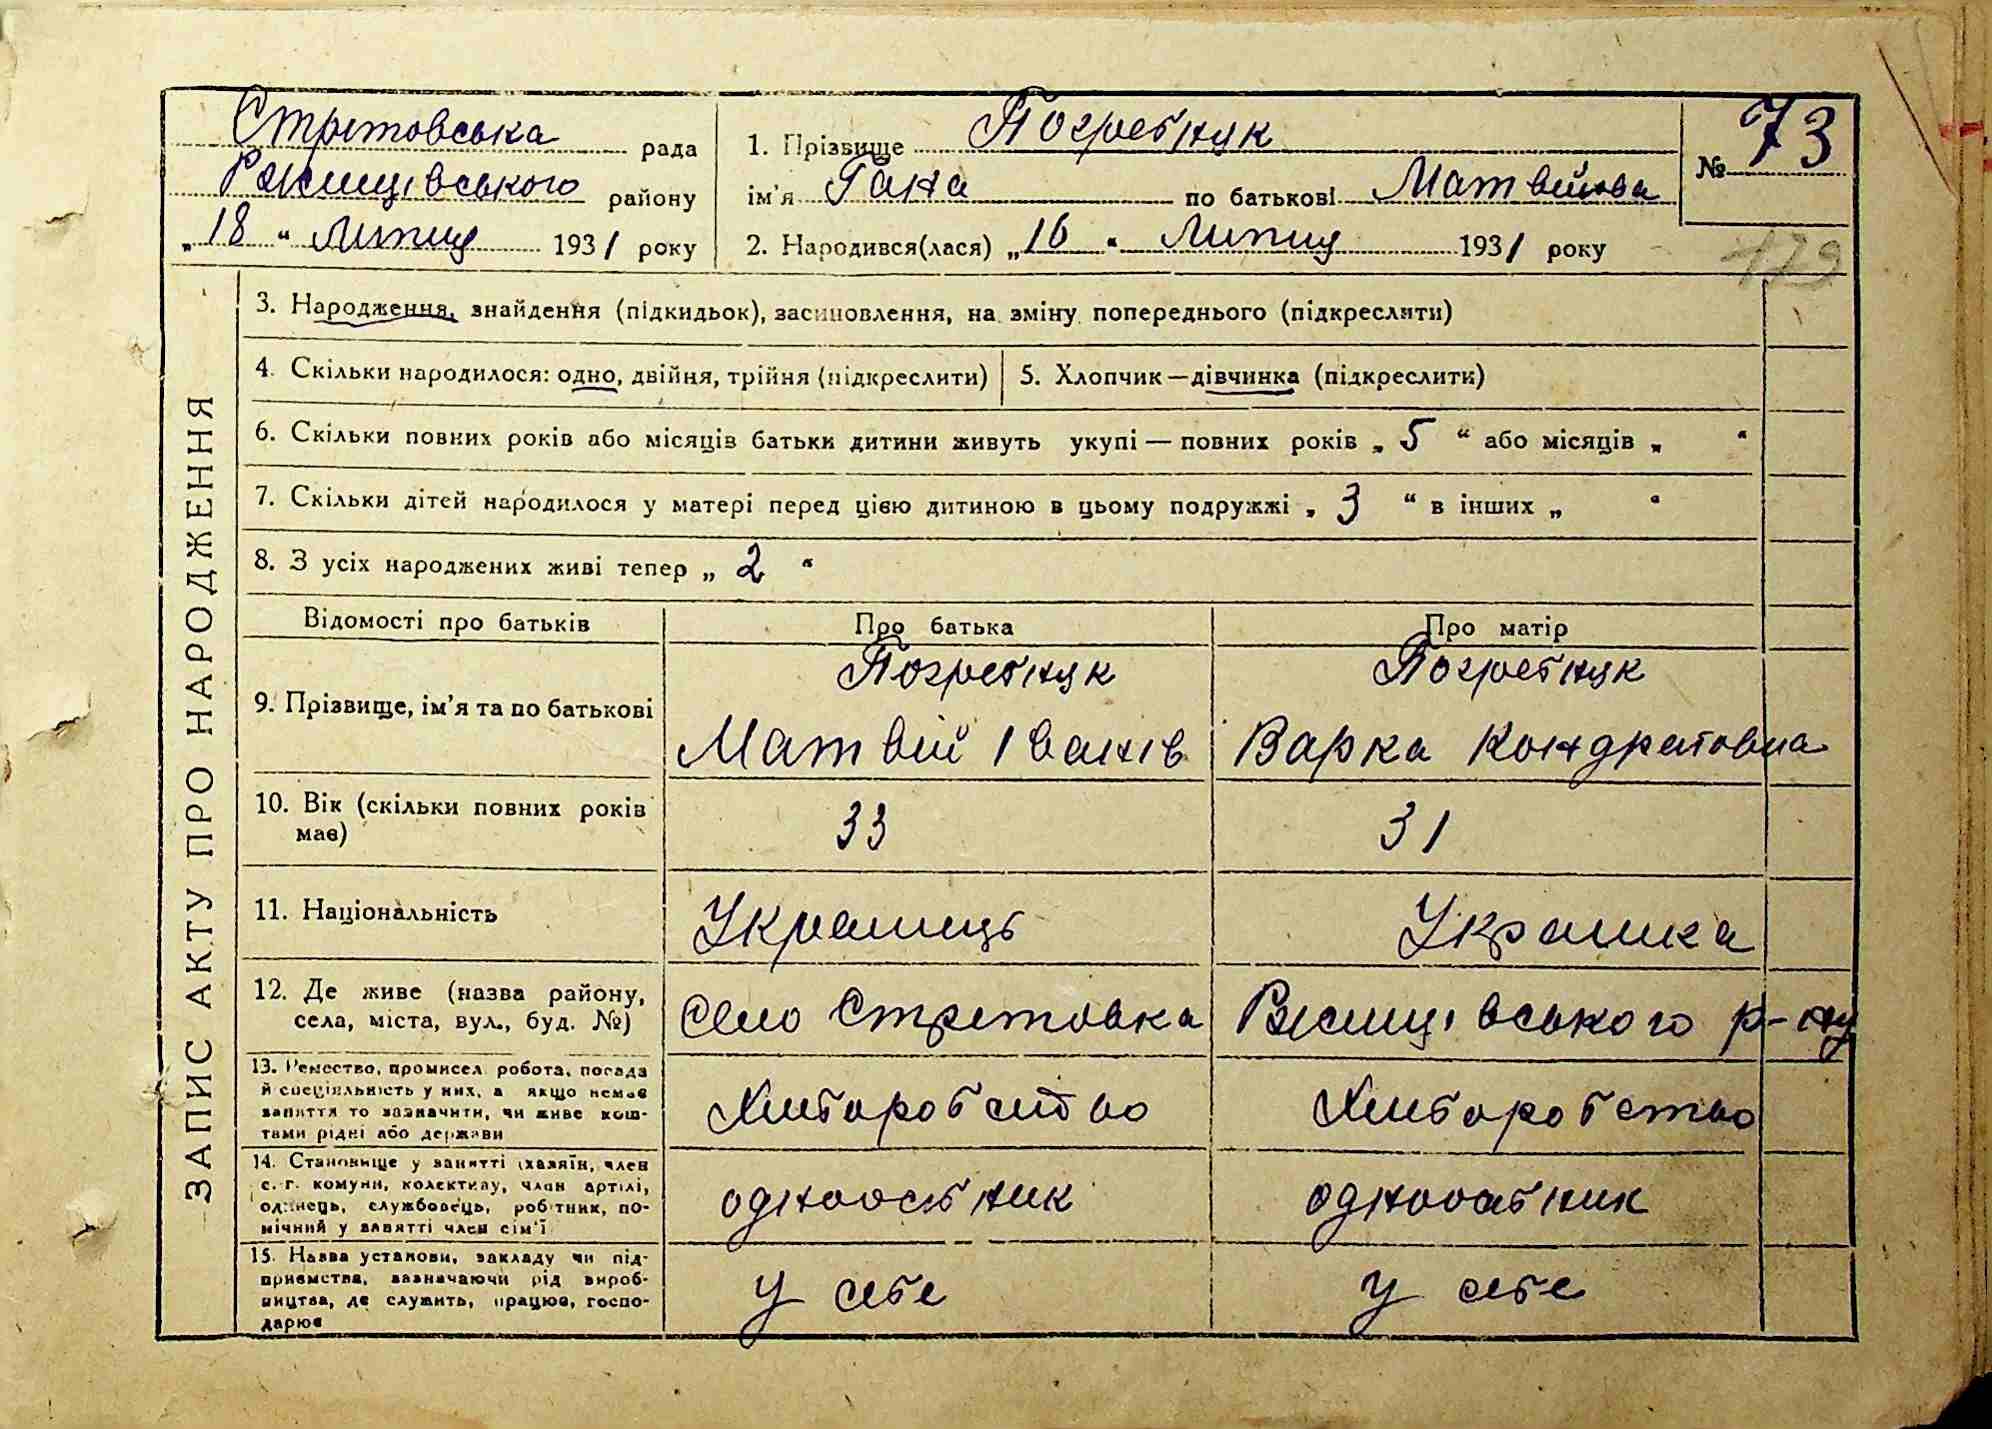 Стрітовська рада
Ржищівського району
„18“ Липця 1931 року
1. Прізвище Погребняк
ім'я Гана по батькові Матвійова
2. Народився(лася) „16“ Липця 1931 року
№ 73
179
ЗАПИС АКТУ ПРО НАРОДЖЕННЯ
3. Народження, знайдення (підкидьок), засиновлення, на зміну попереднього (підкреслити)
4. Скільки народилося: одно, двійня, трійня (підкреслити)
5. Хлопчик—дівчинка (підкреслити)
6. Скільки повних років або місяців батьки дитини живуть укупі — повних років „ 5 “ або місяців „ “
7. Скільки дітей народилося у матері перед цією дитиною в цьому подружжі „ 3 “ в інших „ “
8. З усіх народжених живі тепер „ 2 “
Відомості про батьків
Про батька
Про матір
9. Прізвище, ім'я та по батькові
Погребняк
Матвій Іванів
Погребняк
Варка Кондратовна
10. Вік (скільки повних років
має)
33
31
11. Національність
Украинець
Украинка
12. Де живе (назва району,
села, міста, вул., буд. №)
село Стрітовка
Ржищівського р-ну
13. Ремество, промисел, робота, посада
й спеціяльність у них, а якщо немає
заняття то зазначити, чи живе кош-
тами рідні або держави
Хлиборобство
Хлиборобство
14. Становище у занятті (хазяїн, член
с.-г. комуни, колективу, член артілі,
одинець, службовець, робітник, по-
мічний у занятті член сім'ї
одноосібник
одноосібник
15. Назва установи, закладу чи під-
приємства, зазначаючи рід вироб-
ництва, де служить, працює, госпо-
дарює
у себе
у себе